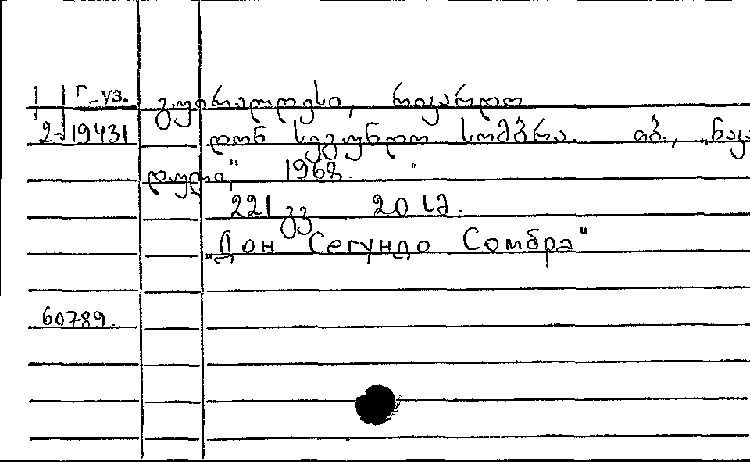 Г-уз. გუირალდესი, რიკარდო
19431 დონ სეგუნდო სომბრა. თბ., „ნაკა
დული" 1968.
221 გვ 20 სმ.
„Дон Сегундо Сомбра"
60789.